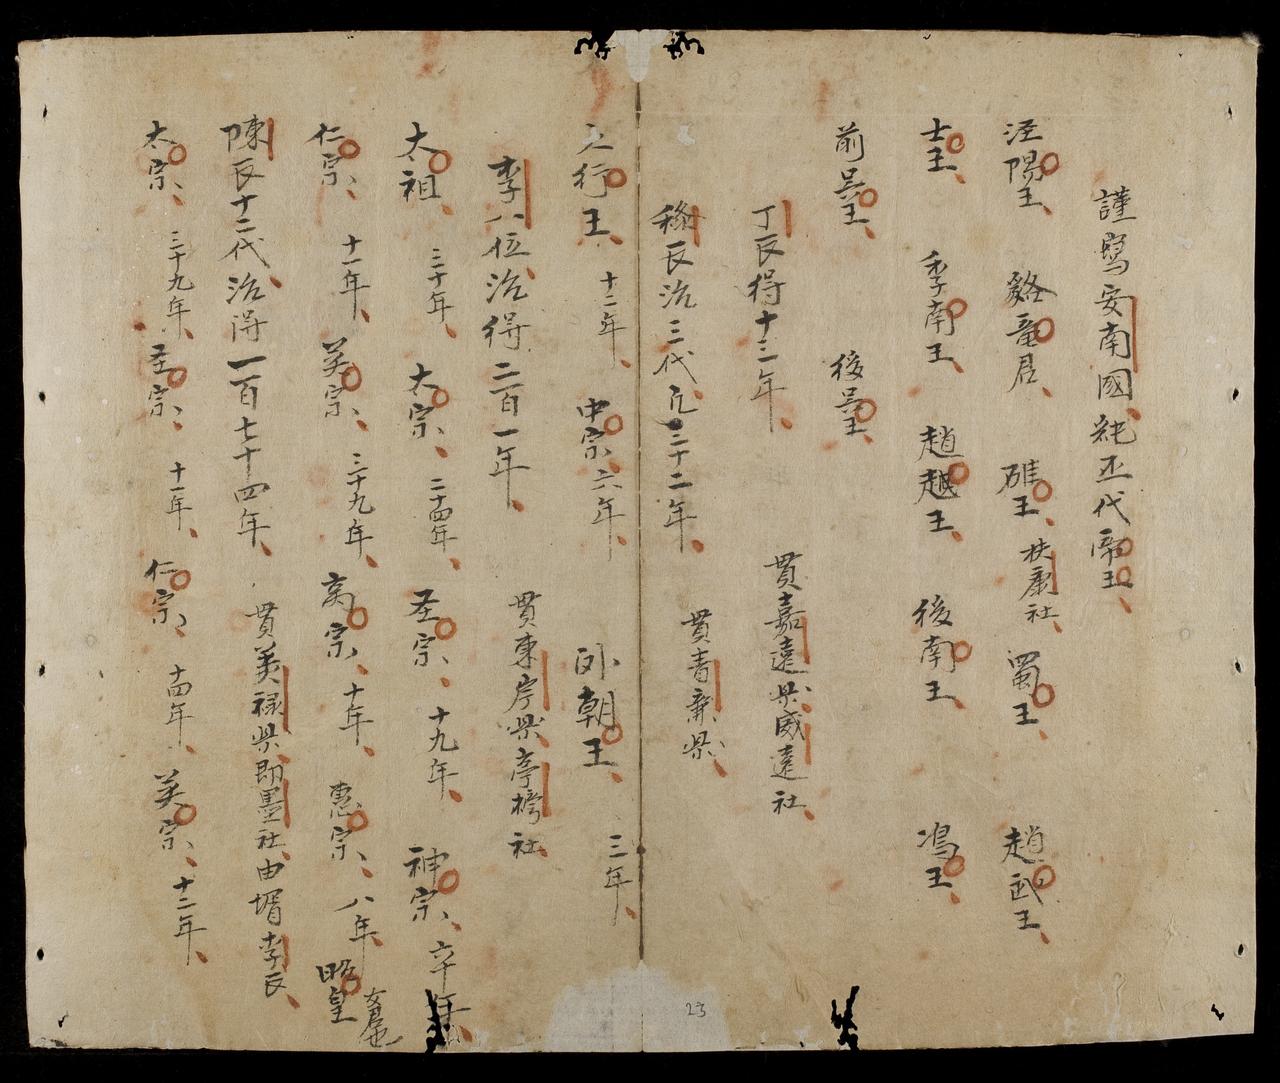 謹寫安南國紀丕代帝王
涇陽王 貉竜君 雄王 扶康社 蜀王 趙武王
士王 李南王 趙越王 後南王 馮王
前吳王 後吳王
丁氏得十三年 貫嘉遠县威遠社
稌氏治三代凡三十二年 貫青廉县
之行王 十二年 中宗六年 卧朝王 三年
李八位治得二百一年 貫東岸县亭榜社
太祖 三十年 太宗 二十四年 圣宗 十九年 神宗 六十年
仁宗 十一年 英宗 三十九年 高宗 十年 惠宗 八年 昭皇
陳氏十二代治得一百七十四年 貫美禄县即墨社由壻李氏
太宗 三十九年 圣宗 十一年 仁宗 十四年 英宗 十二年
23